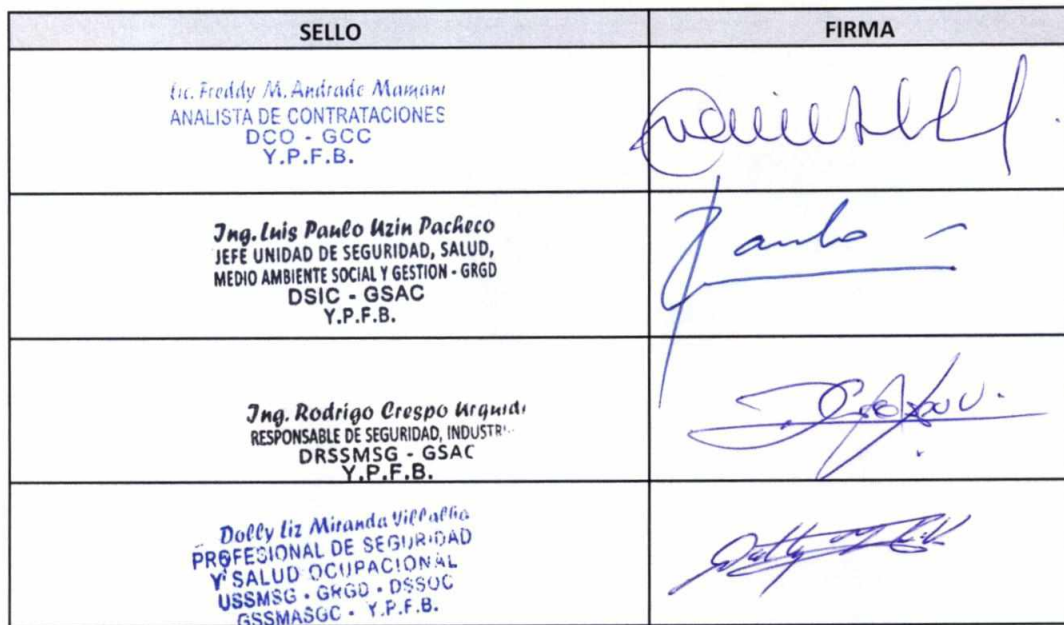 SELLO
FIRMA
Lic. Freddy M. Andrade Mamani
ANALISTA DE CONTRATACIONES
DCO - GCC
Y.P.F.B.
Ing. Luis Paulo Uzin Pacheco
JEFE UNIDAD DE SEGURIDAD, SALUD,
MEDIO AMBIENTE SOCIAL Y GESTION - GRGD
DSIC - GSAC
Y.P.F.B.
Paulo
Ing. Rodrigo Crespo Urquidi
RESPONSABLE DE SEGURIDAD, INDUSTRI
DRSSMSG - GSAC
Y.P.F.B.
Dolly Liz Miranda Villalba
PROFESIONAL DE SEGURIDAD
Y SALUD OCUPACIONAL
USSMSG - GRGD - DSSOC
GSSMASGC - Y.P.F.B.